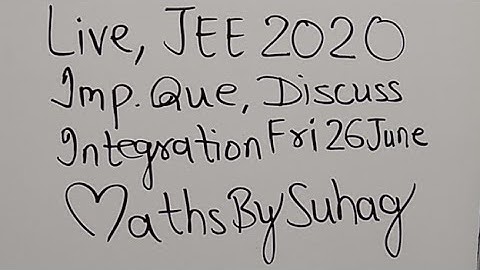 Live, JEE 2020
Imp. Que, Discuss
Integration Fri 26 June
MathsBySuhag